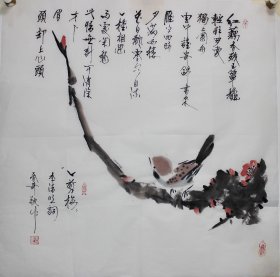 红藕香残玉簟秋
轻解罗裳
独上兰舟
云中谁寄锦书来
雁字回时
月满西楼
花自飘零水自流
一种相思
两处闲愁
此情无计可消除
才下
眉
头却上心头
一剪梅
李清照词